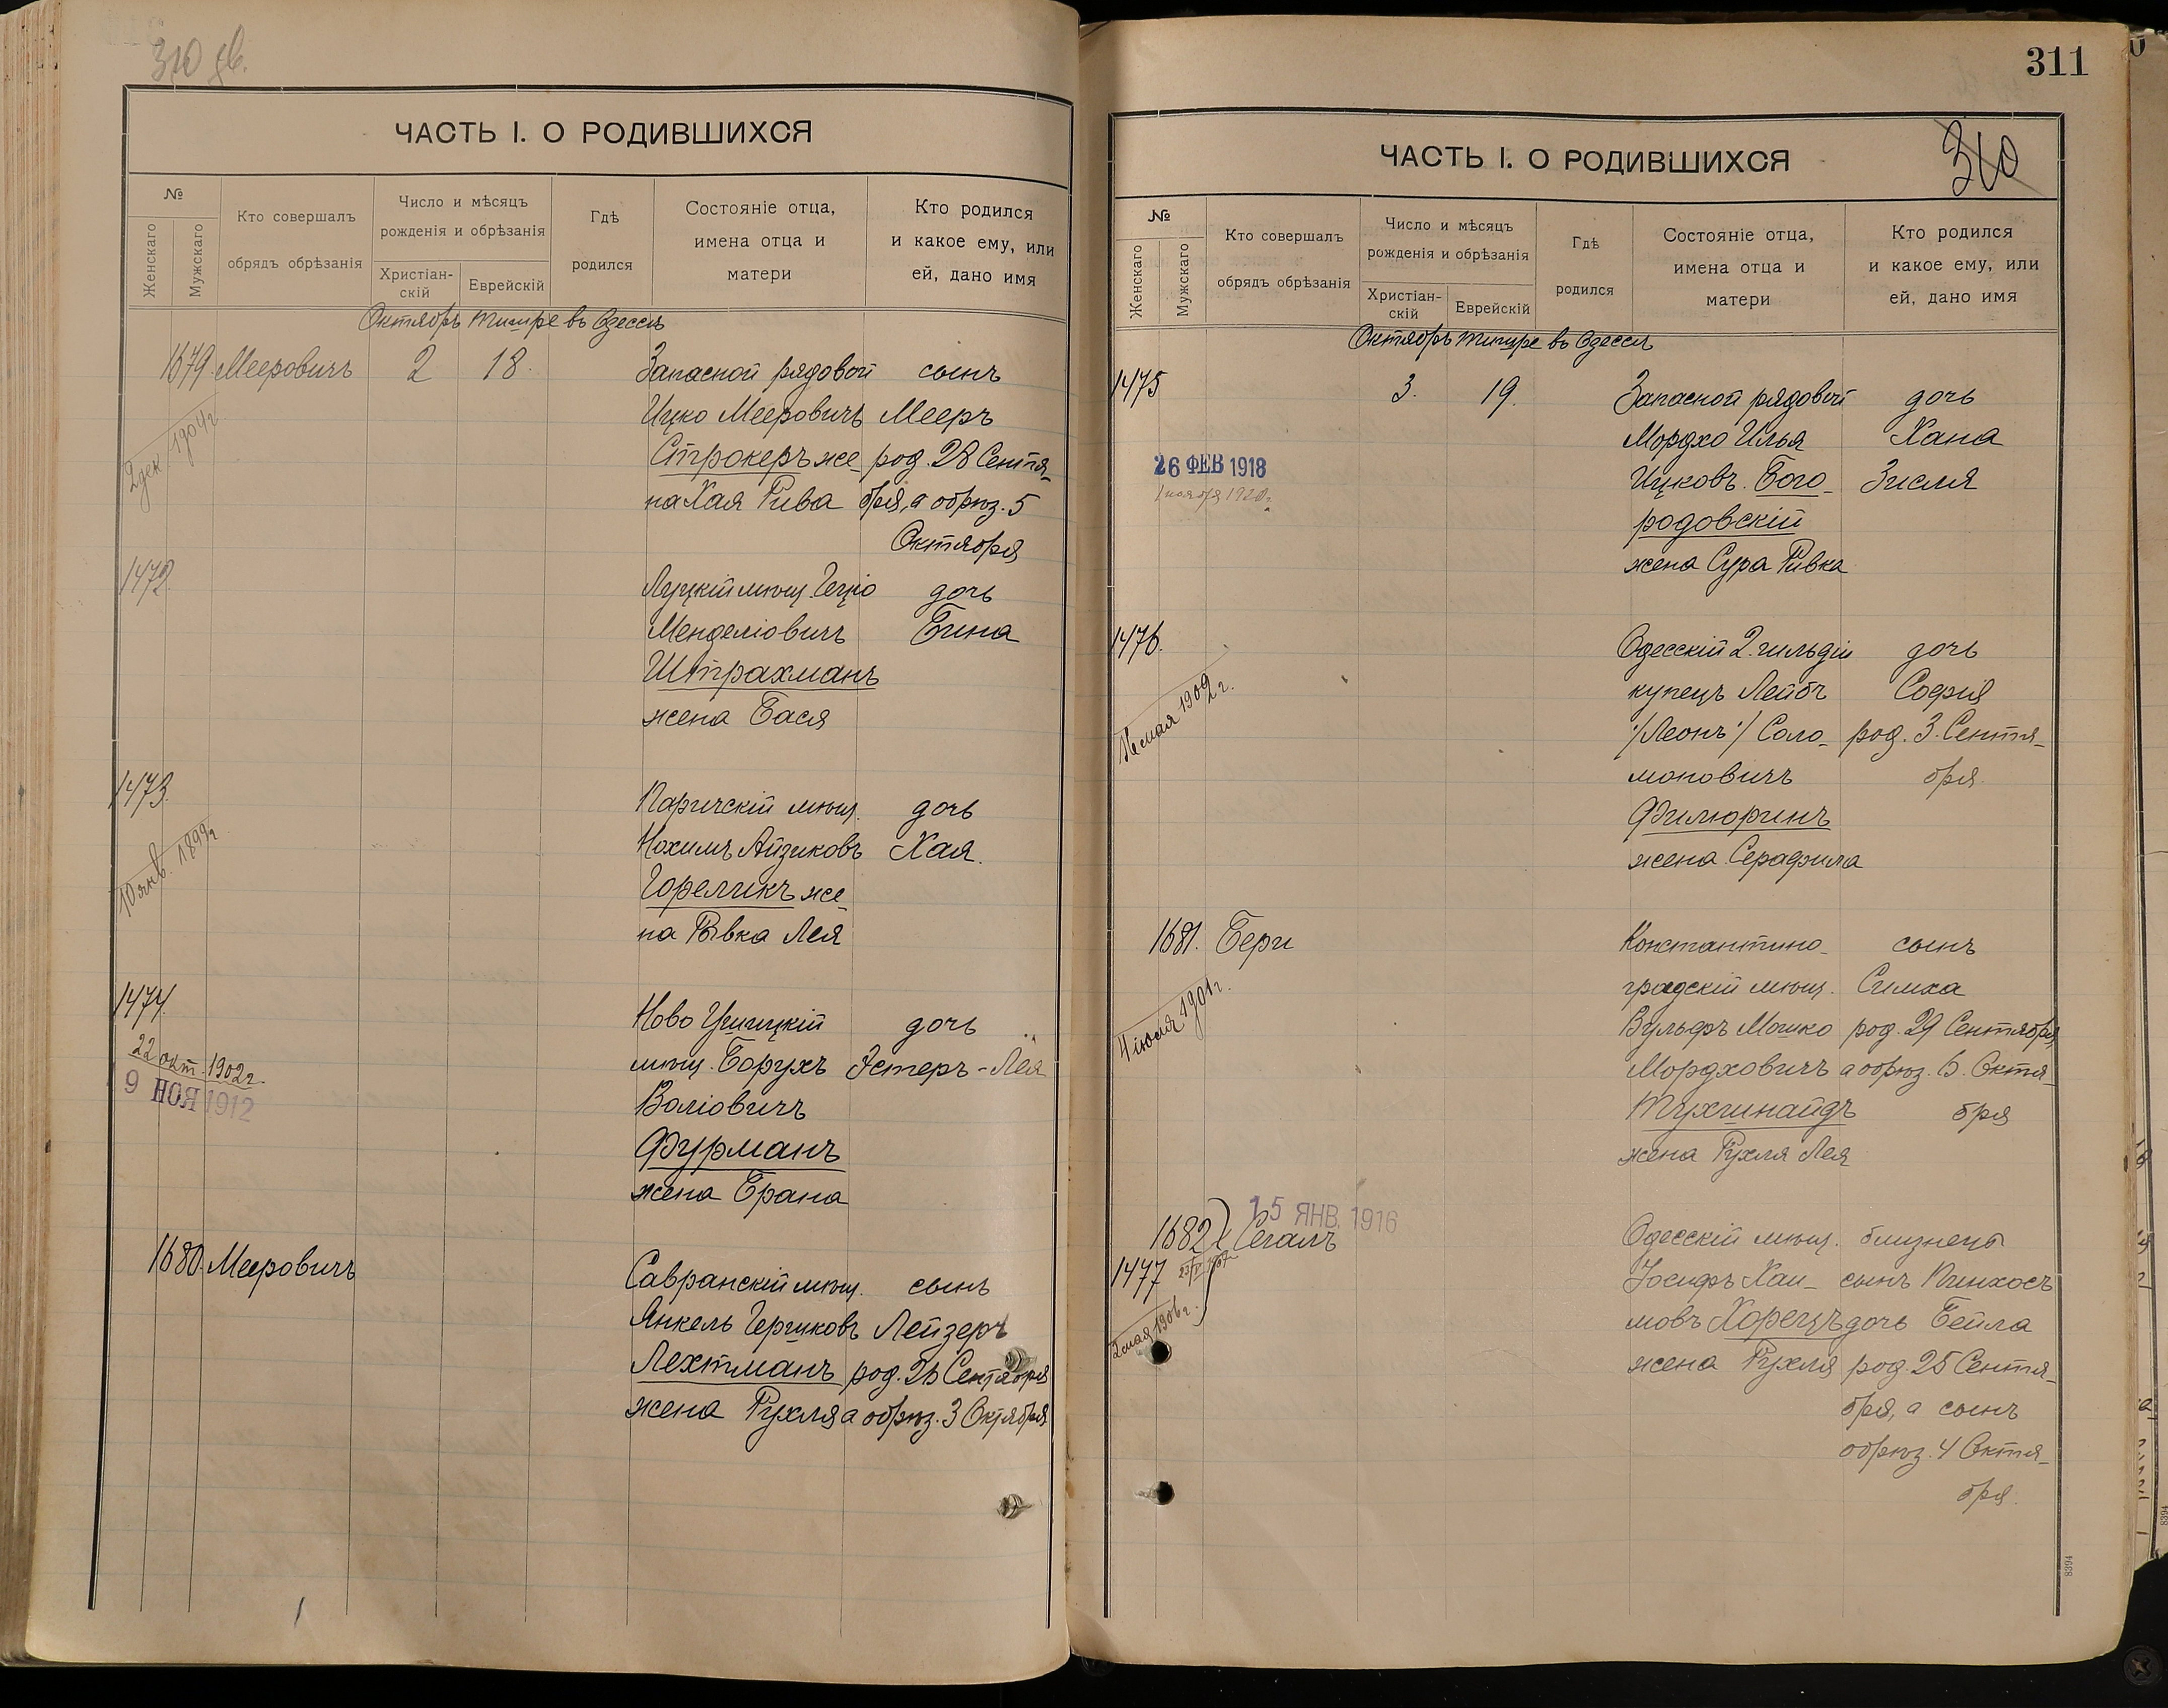 310 об.
ЧАСТЬ I. О РОДИВШИХСЯ
№
Женскаго
Мужскаго
Кто совершалъ
обрядъ обрѣзанія
Число и мѣсяцъ
рожденія и обрѣзанія
Христіан-
скій
Еврейскій
Гдѣ
родился
Состояніе отца,
имена отца и
матери
Кто родился
и какое ему, или
ей, дано имя
Октябрь Тишре въ Одессѣ
1679. Мееровичъ 2 18. Запасной рядовой сынъ
Ицко Мееровичъ Мееръ
Строкеръ же- род. 28 Сентя-
на Хая Рива бря, а обрѣз. 5
Октября
2 дек. 1904 г.
1472. Луцкій мѣщ. Гецю дочь
Менделіовичъ Бина
Штрахманъ
жена Бася
1473. Паричскій мѣщ. дочь
Нохимъ Айзиковъ Хая.
Гореликъ же-
на Рывка Лея
10 янв. 1899 г.
1474. Ново Ушицкій дочь
мѣщ. Борухъ Эстеръ-Лея
Воліовичъ
Фурманъ
жена Брана
22 окт. 1902 г.
9 НОЯ 1912
1680. Мееровичъ Савранскій мѣщ. сынъ
Янкель Гершковъ Лейзеръ
Лехтманъ род. 26 Сентября
жена Рухля а обрѣз. 3 Октября
311
310
ЧАСТЬ I. О РОДИВШИХСЯ
№
Женскаго
Мужскаго
Кто совершалъ
обрядъ обрѣзанія
Число и мѣсяцъ
рожденія и обрѣзанія
Христіан-
скій
Еврейскій
Гдѣ
родился
Состояніе отца,
имена отца и
матери
Кто родился
и какое ему, или
ей, дано имя
Октябрь Тишре въ Одессѣ
1475 3. 19. Запасной рядовой дочь
Мордхо Илья Хана
Ицковъ. Бого- Зисля
родовскій
жена Сура Ривка
26 ФЕВ 1918
1 ноября 1920 г.
1476. Одесскій 2. гильдіи дочь
купецъ Лейбъ Софія
/Леонъ/ Соло- род. 3. Сентя-
моновичъ бря
Филюринъ
жена Серафима
мая 1909 г.
1681. Бери Константино- сынъ
градскій мѣщ. Симха
Вульфъ Мошко род. 29 Сентября
Мордховичъ а обрѣз. 6. Октя-
Тухшнайдъ бря
жена Рухля Лея
4 іюля 1901 г.
15 ЯНВ. 1916
1682 Сегалъ Одесскій мѣщ. близнецы
1477 Іосифъ Хаи- сынъ Пинхосъ
мовъ Хорецъ дочь Бейла
жена Рухля род. 25 Сентя-
бря, а сынъ
обрѣз. 4 Октя-
бря.
2 мая 1906 г.
8394